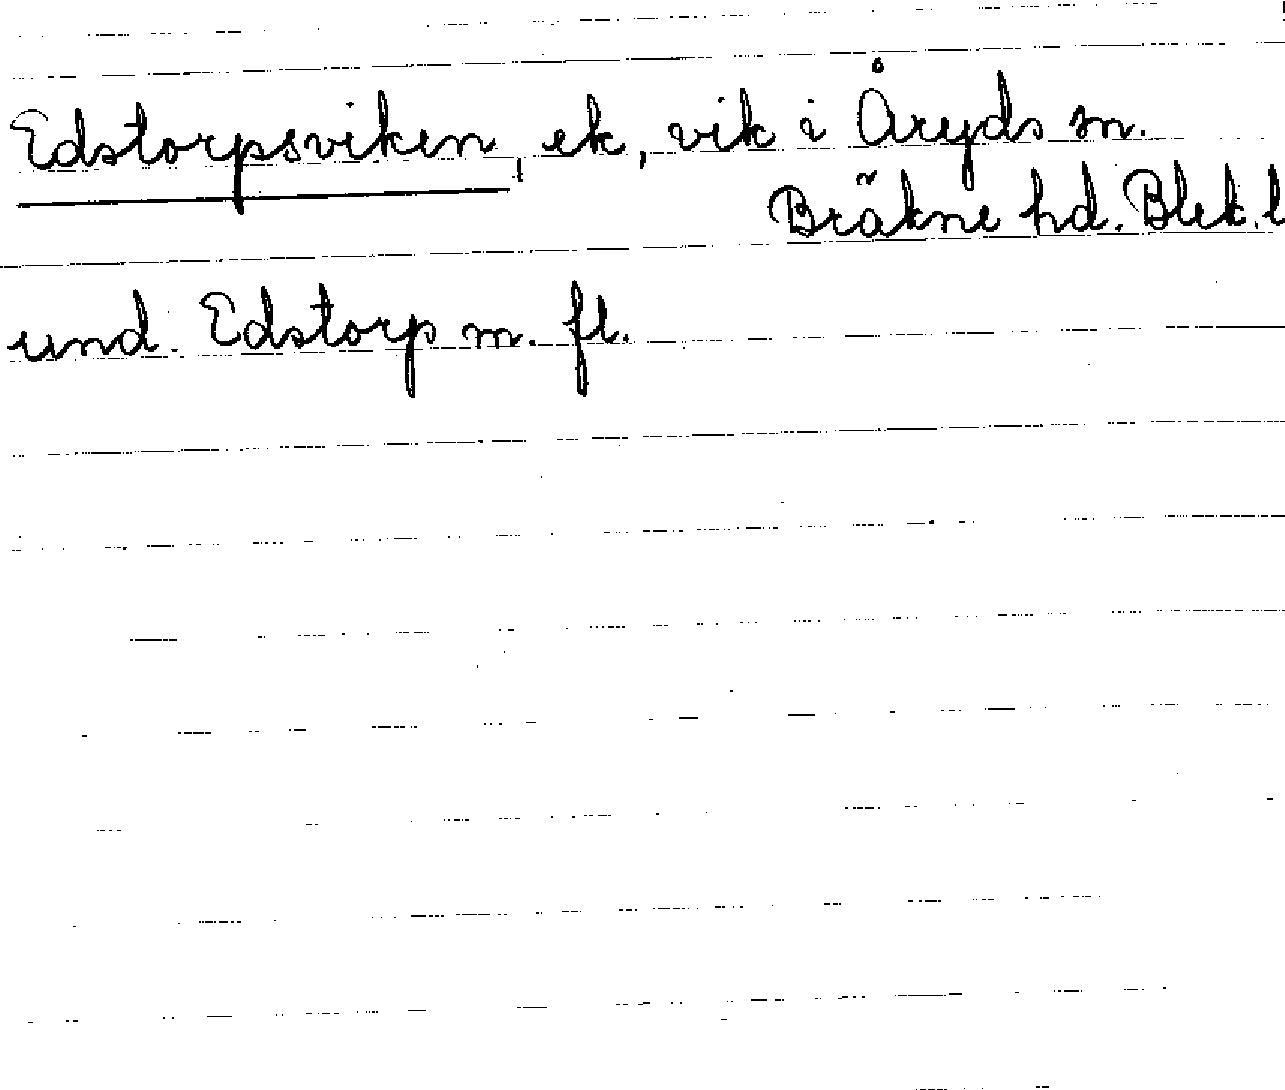 Edstorpsviken, ek, vik i Åryds sn.
Bräkne hd. Blek. l
und. Edstorp m. fl.